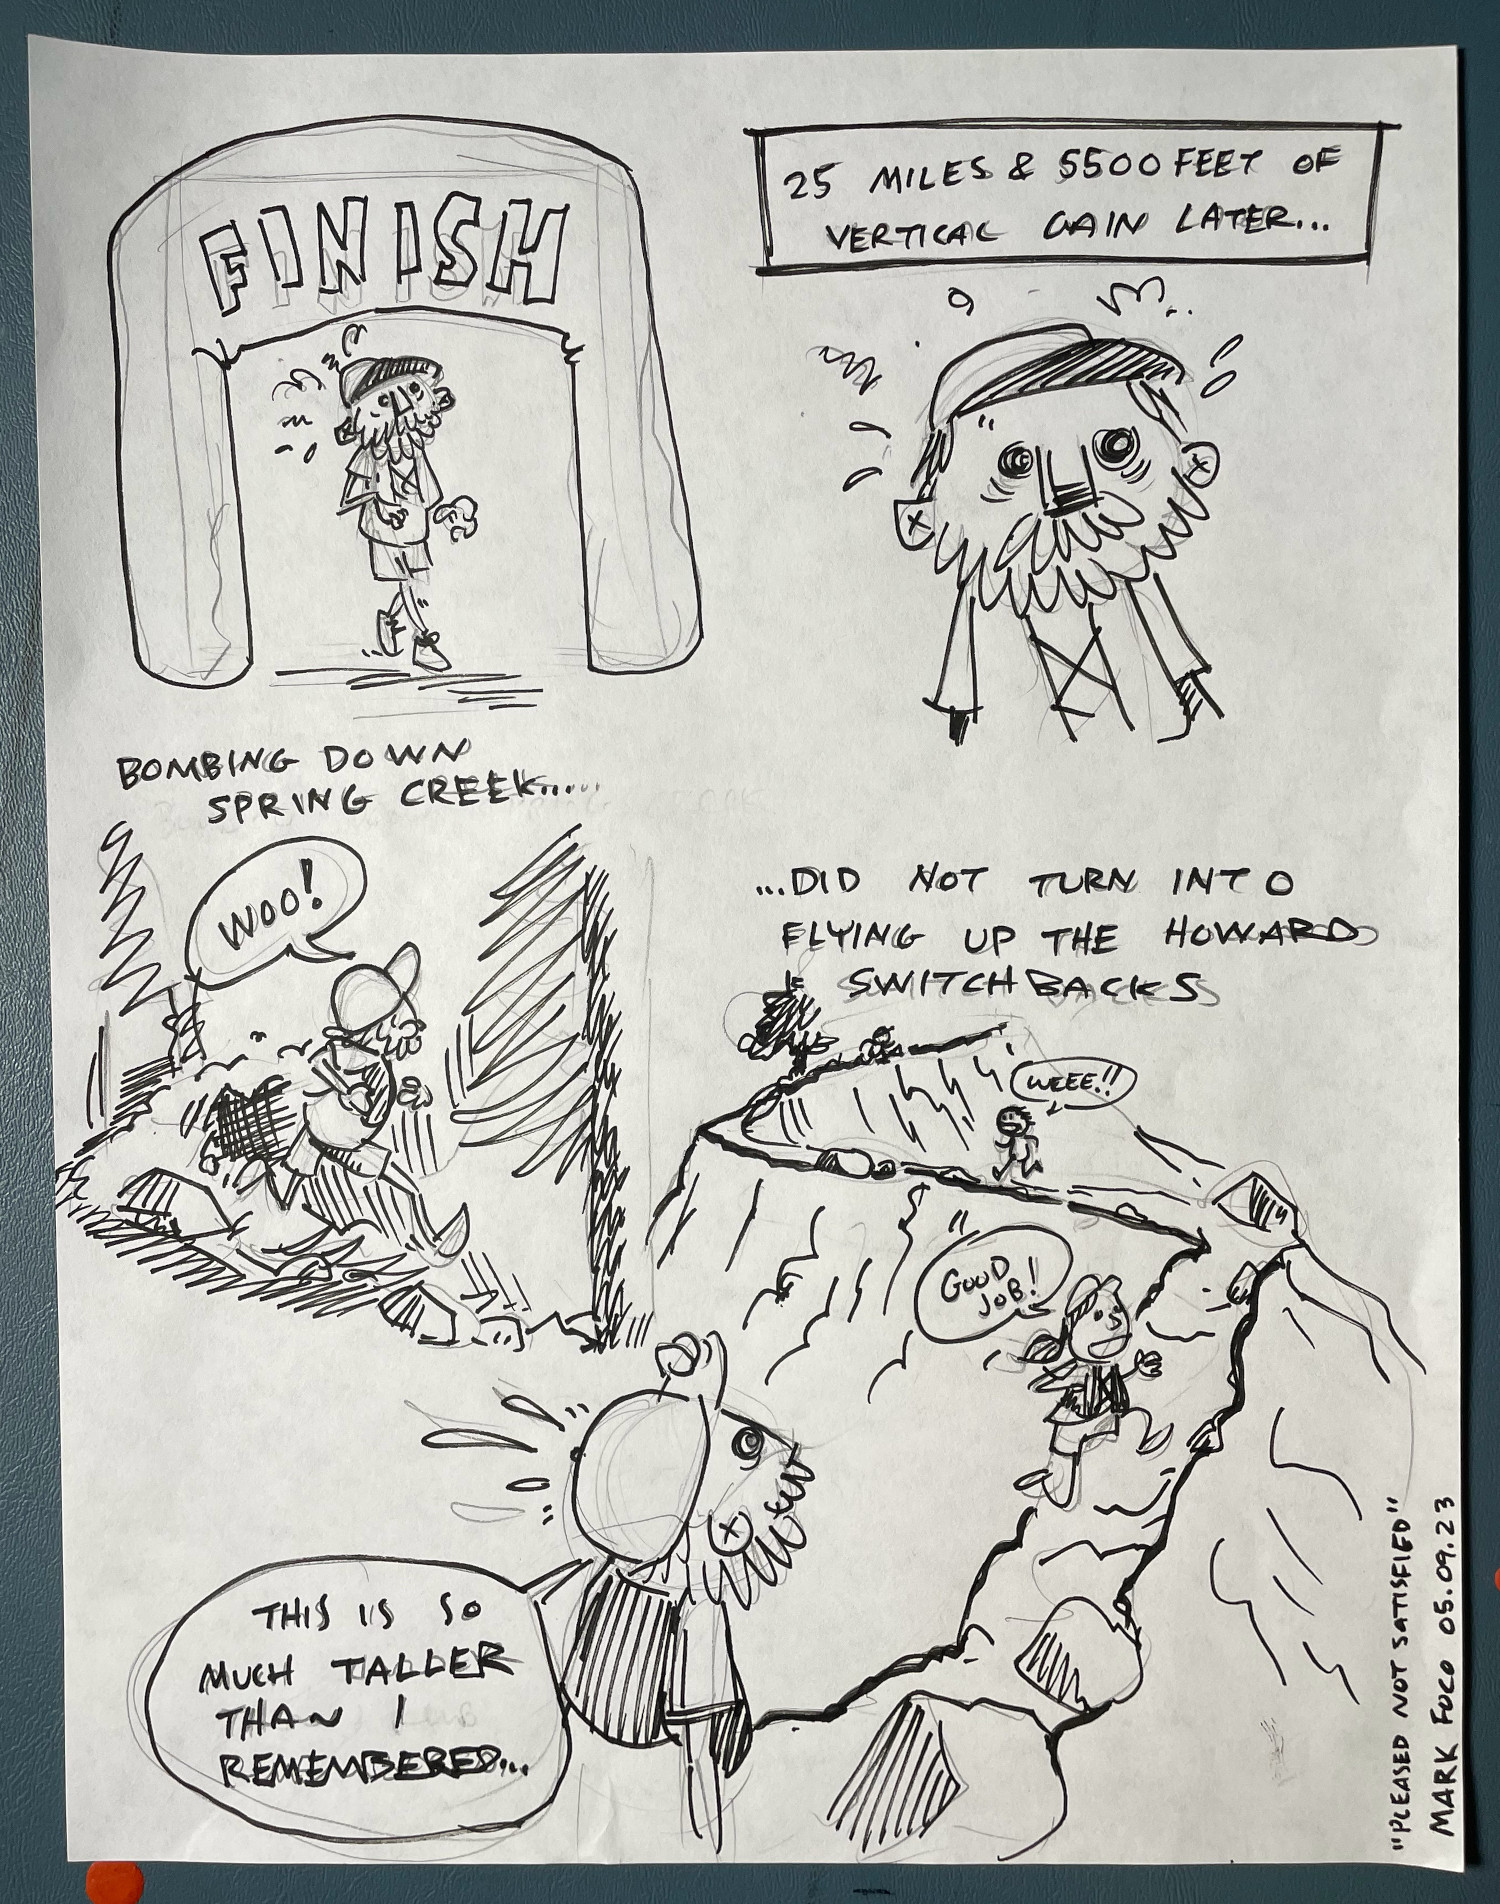 FINISH
25 MILES & 5500 FEET OF
VERTICAL GAIN LATER...
BOMBING DOWN
SPRING CREEK.....
WOO!
...DID NOT TURN INTO
FLYING UP THE HOWARD
SWITCHBACKS
WEEE!!
GOOD
JOB!
THIS IS SO
MUCH TALLER
THAN I
REMEMBERED...
"PLEASED NOT SATISFIED"
MARK FUCO 05.09.23